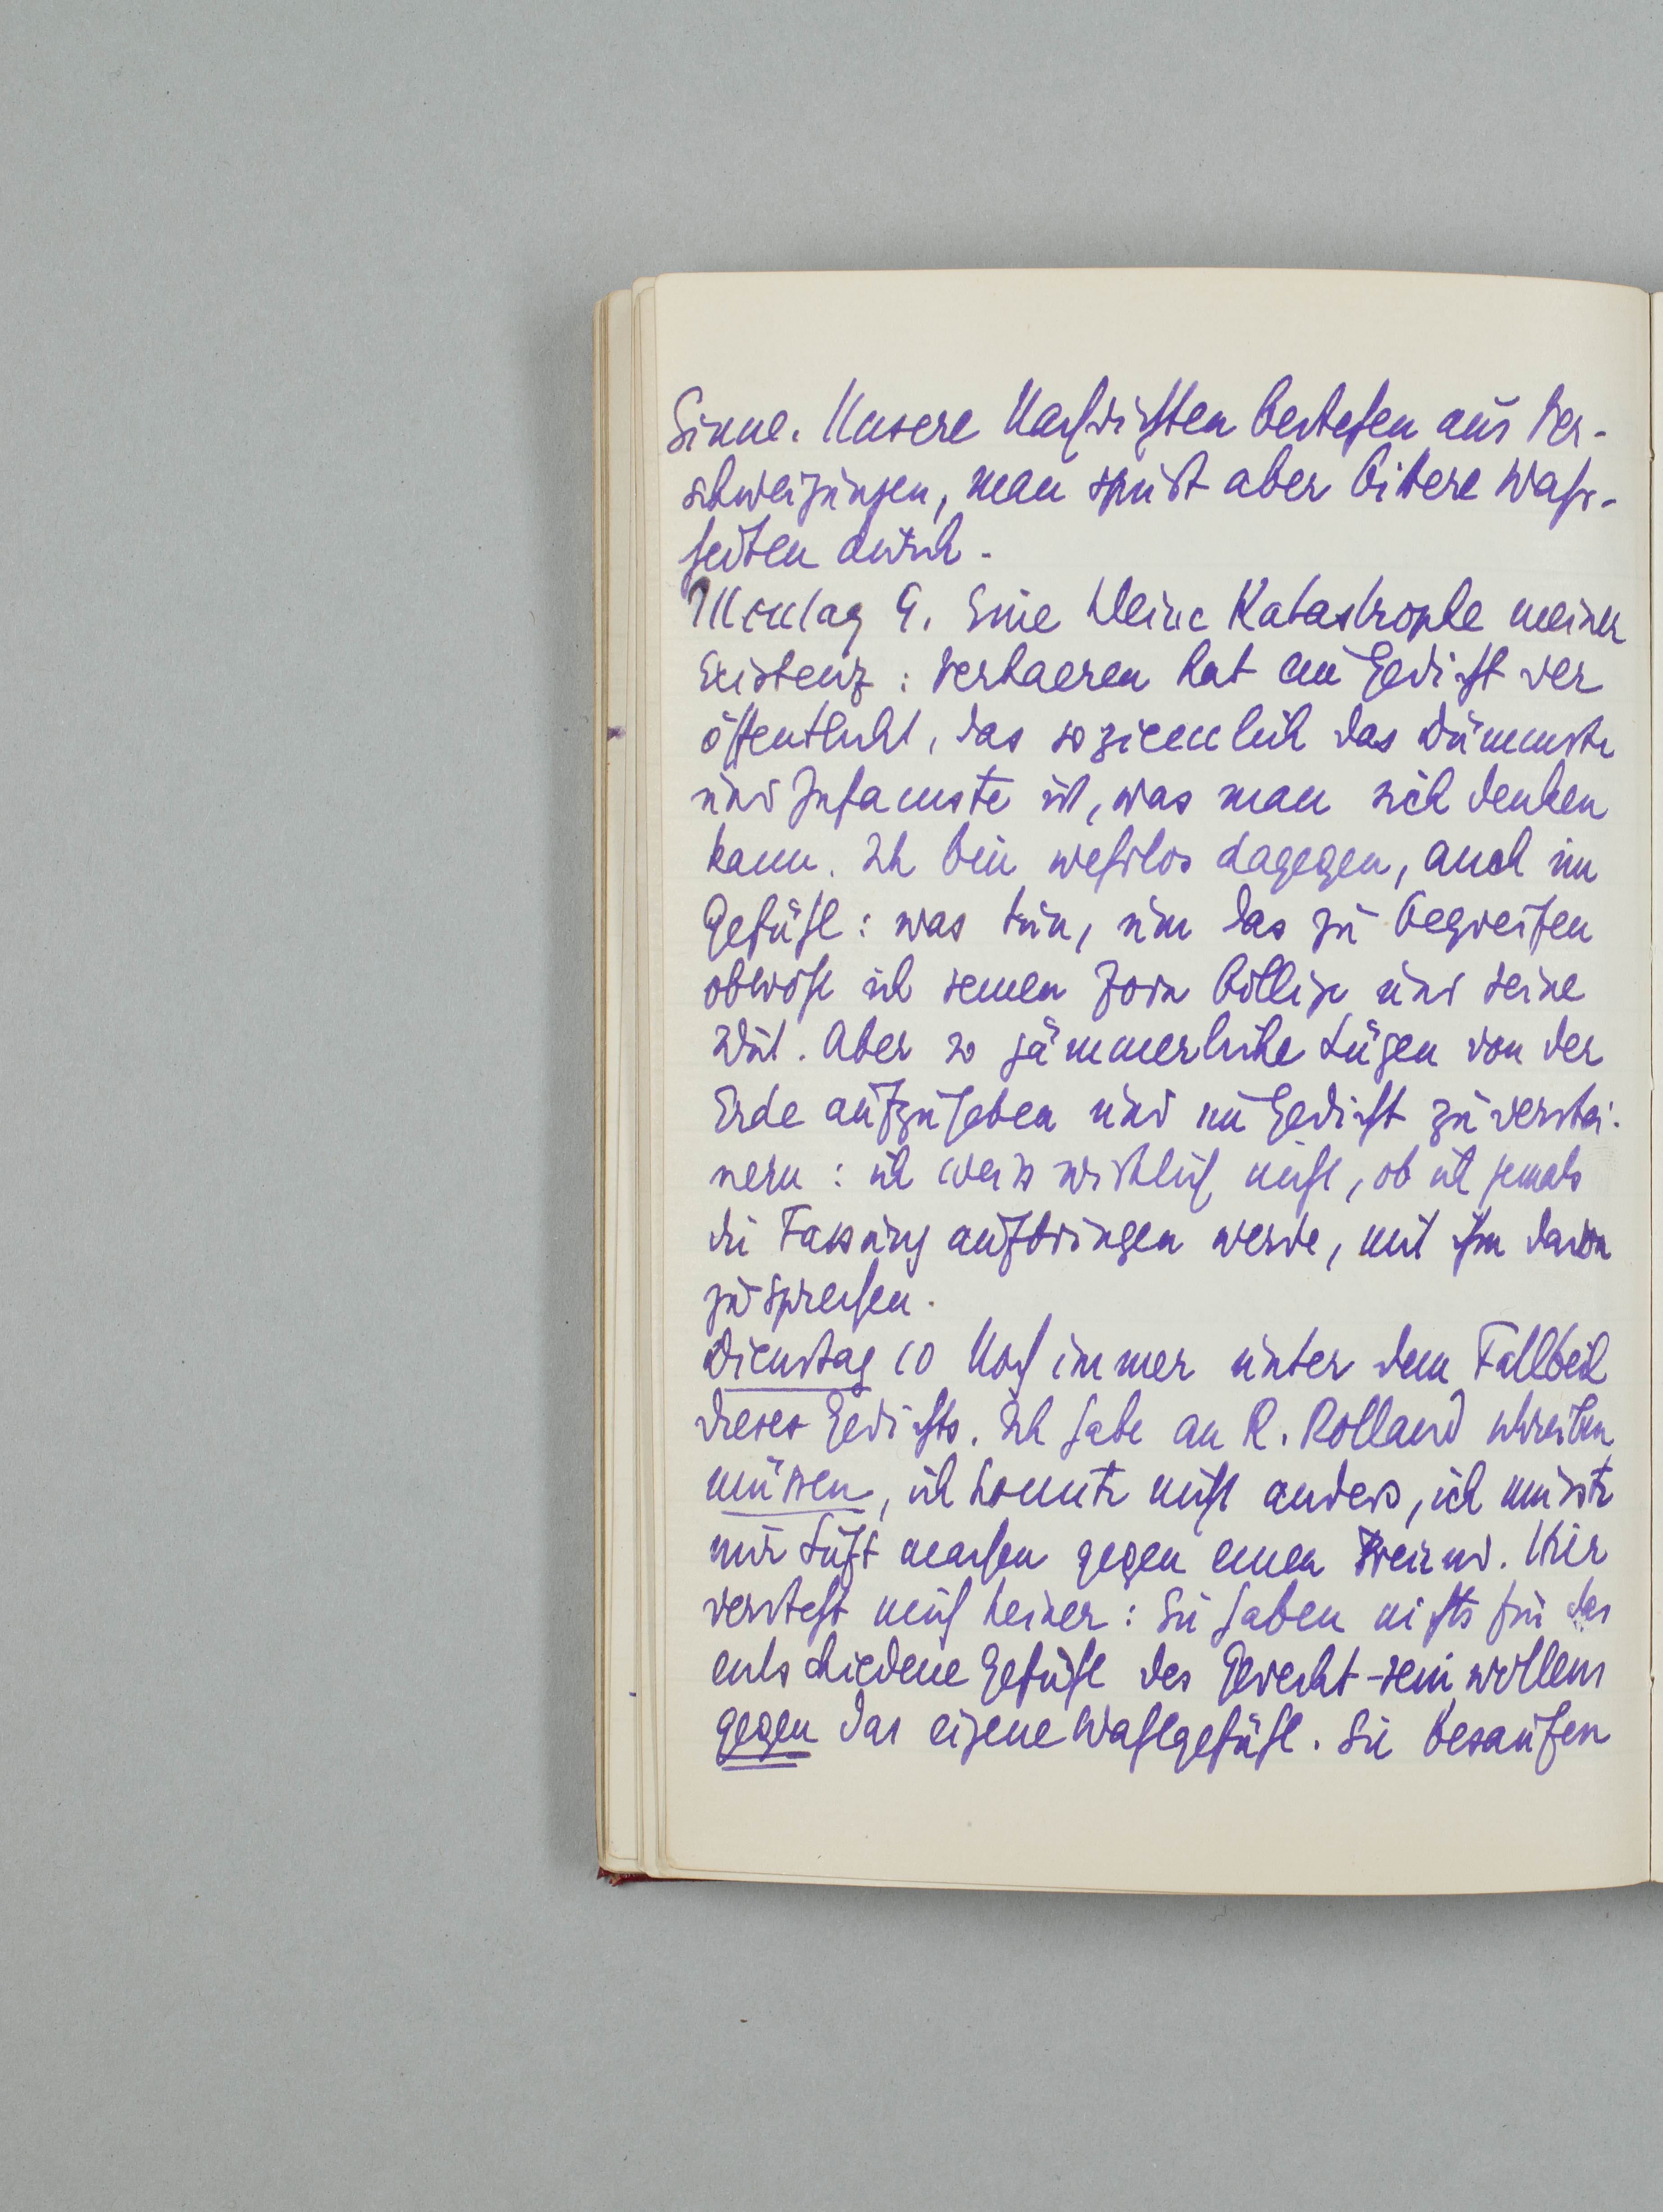 Sinne. Unsere Nachrichten bestehen aus Ver-
schweigungen, man spürt aber bittere Wahr-
heiten durch.
Montag 9. Eine kleine Katastrophe meiner
Existenz: Verhaeren hat ein Gedicht ver
öffentlicht, das so ziemlich das Dümmste
und Infamste ist, was man sich denken
kann. Ich bin wehrlos dagegen, auch im
Gefühl: was tun, um das zu begreifen
obwohl ich seinen Zorn billige und seine
Wut. Aber so jämmerliche Lügen von der
Erde aufzuheben und im Gedicht zu verstei-
nern: ich weiss wirklich nicht, ob ich jemals
die Fassung aufbringen werde, mit ihm davon
zu sprechen.
Dienstag 10 Noch immer unter dem Fallbeil
dieses Gedichts. Ich habe an R. Rolland schreiben
müssen, ich konnte nicht anders, ich musste
mir Luft machen gegen einen Freund. Hier
versteht mich keiner: Sie haben nichts für das
entschiedene Gefühl des Gerecht-sein wollens
gegen das eigene Wahlgefühl. Sie besaufen